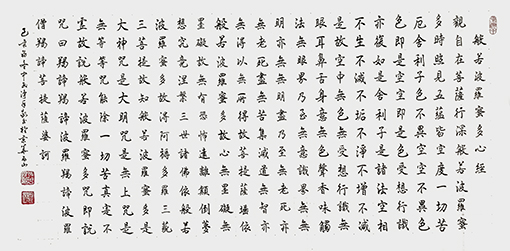 般若波羅蜜多心經
觀自在菩薩行深般若波羅蜜
多時照見五蘊皆空度一切苦
厄舍利子色不異空空不異色
色即是空空即是色受想行識
亦復如是舍利子是諸法空相
不生不滅不垢不淨不增不減
是故空中無色無受想行識無
眼耳鼻舌身意無色聲香味觸
法無眼界乃至無意識界無無
明亦無無明盡乃至無老死亦
無老死盡無苦集滅道無智亦
無得以無所得故菩提薩埵依
般若波羅蜜多故心無罣礙無
罣礙故無有恐怖遠離顛倒夢
想究竟涅槃三世諸佛依般若
波羅蜜多故得阿耨多羅三藐
三菩提故知般若波羅蜜多是
大神咒是大明咒是無上咒是
無等等咒能除一切苦真實不
虛故說般若波羅蜜多咒即說
咒曰羯諦羯諦波羅羯諦波羅
僧羯諦菩提薩婆訶